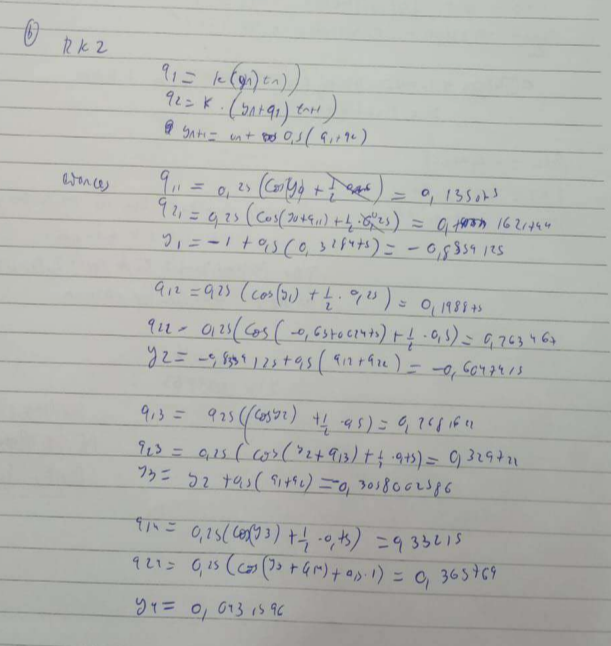 b) RK2
q1 = k(yn, tn)
q2 = k·(yn+q1, tn+1)
yn+1 = un + 0,5(q1+q2)
q11 = 0,25(cos(y0) + 1/2 ) = 0,135075
q21 = 0,25(cos(y0+q11) + 1/2 · 0,25) =
y1 = -1 + 0,5(0,328475) = -0,8359125
q12 = 0,25(cos(y1) + 1/2 · 0,25) = 0,198875
q22 = 0,25(cos( ) + 1/2 · 0,5) = 0,263467
y2 = -0,8359125 + 0,5(q12+q22) = -0,6047415
q13 = 0,25(cos(y2) + 1/2 · 0,5) = 0,2681611
q23 = 0,25(cos(y2+q13) + 1/2 · 0,75) = 0,329721
y3 = y2 + 0,5(q1+q2) = -0,3058002586
q14 = 0,25(cos(y3) + 1/2 · 0,75) = 0,33215
q24 = 0,25(cos(y3+q14) + 0,5·1) = 0,365769
y4 = 0,0431596